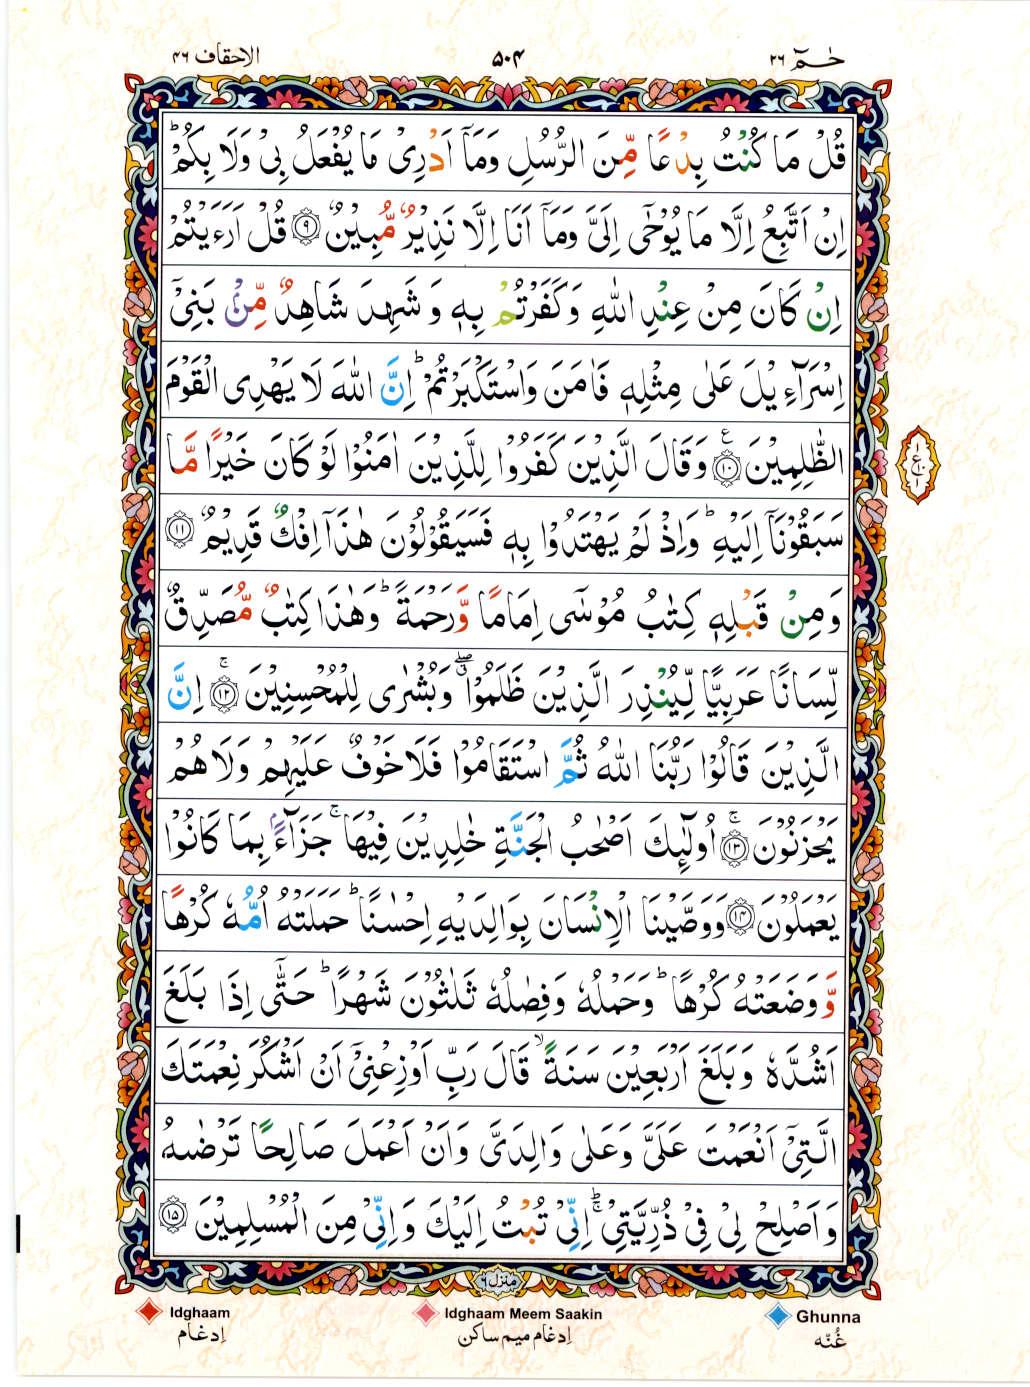 حٰـمٓ ٢٦
٥٠٤
الاحقاف ٤٦
قُلْ مَا كُنْتُ بِدْعًا مِّنَ الرُّسُلِ وَمَاۤ اَدْرِىْ مَا يُفْعَلُ بِىْ وَلَا بِكُمْ ؕ
اِنْ اَتَّبِعُ اِلَّا مَا يُوْحٰٓى اِلَىَّ وَمَاۤ اَنَا اِلَّا نَذِيْرٌ مُّبِيْنٌ ﴿٩﴾ قُلْ اَرَءَيْتُمْ
اِنْ كَانَ مِنْ عِنْدِ اللّٰهِ وَكَفَرْتُمْ بِهٖ وَ شَهِدَ شَاهِدٌ مِّنْۢ بَنِىْۤ
اِسْرَآءِيْلَ عَلٰى مِثْلِهٖ فَاٰمَنَ وَاسْتَكْبَرْتُمْ ؕ اِنَّ اللّٰهَ لَا يَهْدِى الْقَوْمَ
الظّٰلِمِيْنَ ﴿١٠﴾ ع وَقَالَ الَّذِيْنَ كَفَرُوْا لِلَّذِيْنَ اٰمَنُوْا لَوْ كَانَ خَيْرًا مَّا
سَبَقُوْنَاۤ اِلَيْهِ ؕ وَاِذْ لَمْ يَهْتَدُوْا بِهٖ فَسَيَقُوْلُوْنَ هٰذَاۤ اِفْكٌ قَدِيْمٌ ﴿١١﴾
وَمِنْ قَبْلِهٖ كِتٰبُ مُوْسٰٓى اِمَامًا وَّرَحْمَةً ؕ وَهٰذَا كِتٰبٌ مُّصَدِّقٌ
لِّسَانًا عَرَبِيًّا لِّيُنْذِرَ الَّذِيْنَ ظَلَمُوْا ۖ وَبُشْرٰى لِلْمُحْسِنِيْنَ ﴿١٢﴾ ۚ اِنَّ
الَّذِيْنَ قَالُوْا رَبُّنَا اللّٰهُ ثُمَّ اسْتَقَامُوْا فَلَا خَوْفٌ عَلَيْهِمْ وَلَا هُمْ
يَحْزَنُوْنَ ﴿١٣﴾ ۚ اُولٰٓئِكَ اَصْحٰبُ الْجَنَّةِ خٰلِدِيْنَ فِيْهَا ۚ جَزَآءًۢ بِمَا كَانُوْا
يَعْمَلُوْنَ ﴿١٤﴾ وَوَصَّيْنَا الْاِنْسَانَ بِوَالِدَيْهِ اِحْسٰنًا ؕ حَمَلَتْهُ اُمُّهٗ كُرْهًا
وَّوَضَعَتْهُ كُرْهًا ؕ وَحَمْلُهٗ وَفِصٰلُهٗ ثَلٰثُوْنَ شَهْرًا ؕ حَتّٰٓى اِذَا بَلَغَ
اَشُدَّهٗ وَبَلَغَ اَرْبَعِيْنَ سَنَةً ۙ قَالَ رَبِّ اَوْزِعْنِىْۤ اَنْ اَشْكُرَ نِعْمَتَكَ
الَّتِىْۤ اَنْعَمْتَ عَلَىَّ وَعَلٰى وَالِدَىَّ وَاَنْ اَعْمَلَ صَالِحًا تَرْضٰىهُ
وَاَصْلِحْ لِىْ فِىْ ذُرِّيَّتِىْ ؕۚ اِنِّىْ تُبْتُ اِلَيْكَ وَاِنِّىْ مِنَ الْمُسْلِمِيْنَ ﴿١٥﴾
منزل ٦
Idghaam
Idghaam Meem Saakin
Ghunna
اِدغام
اِدغام میم ساکن
غُنّه